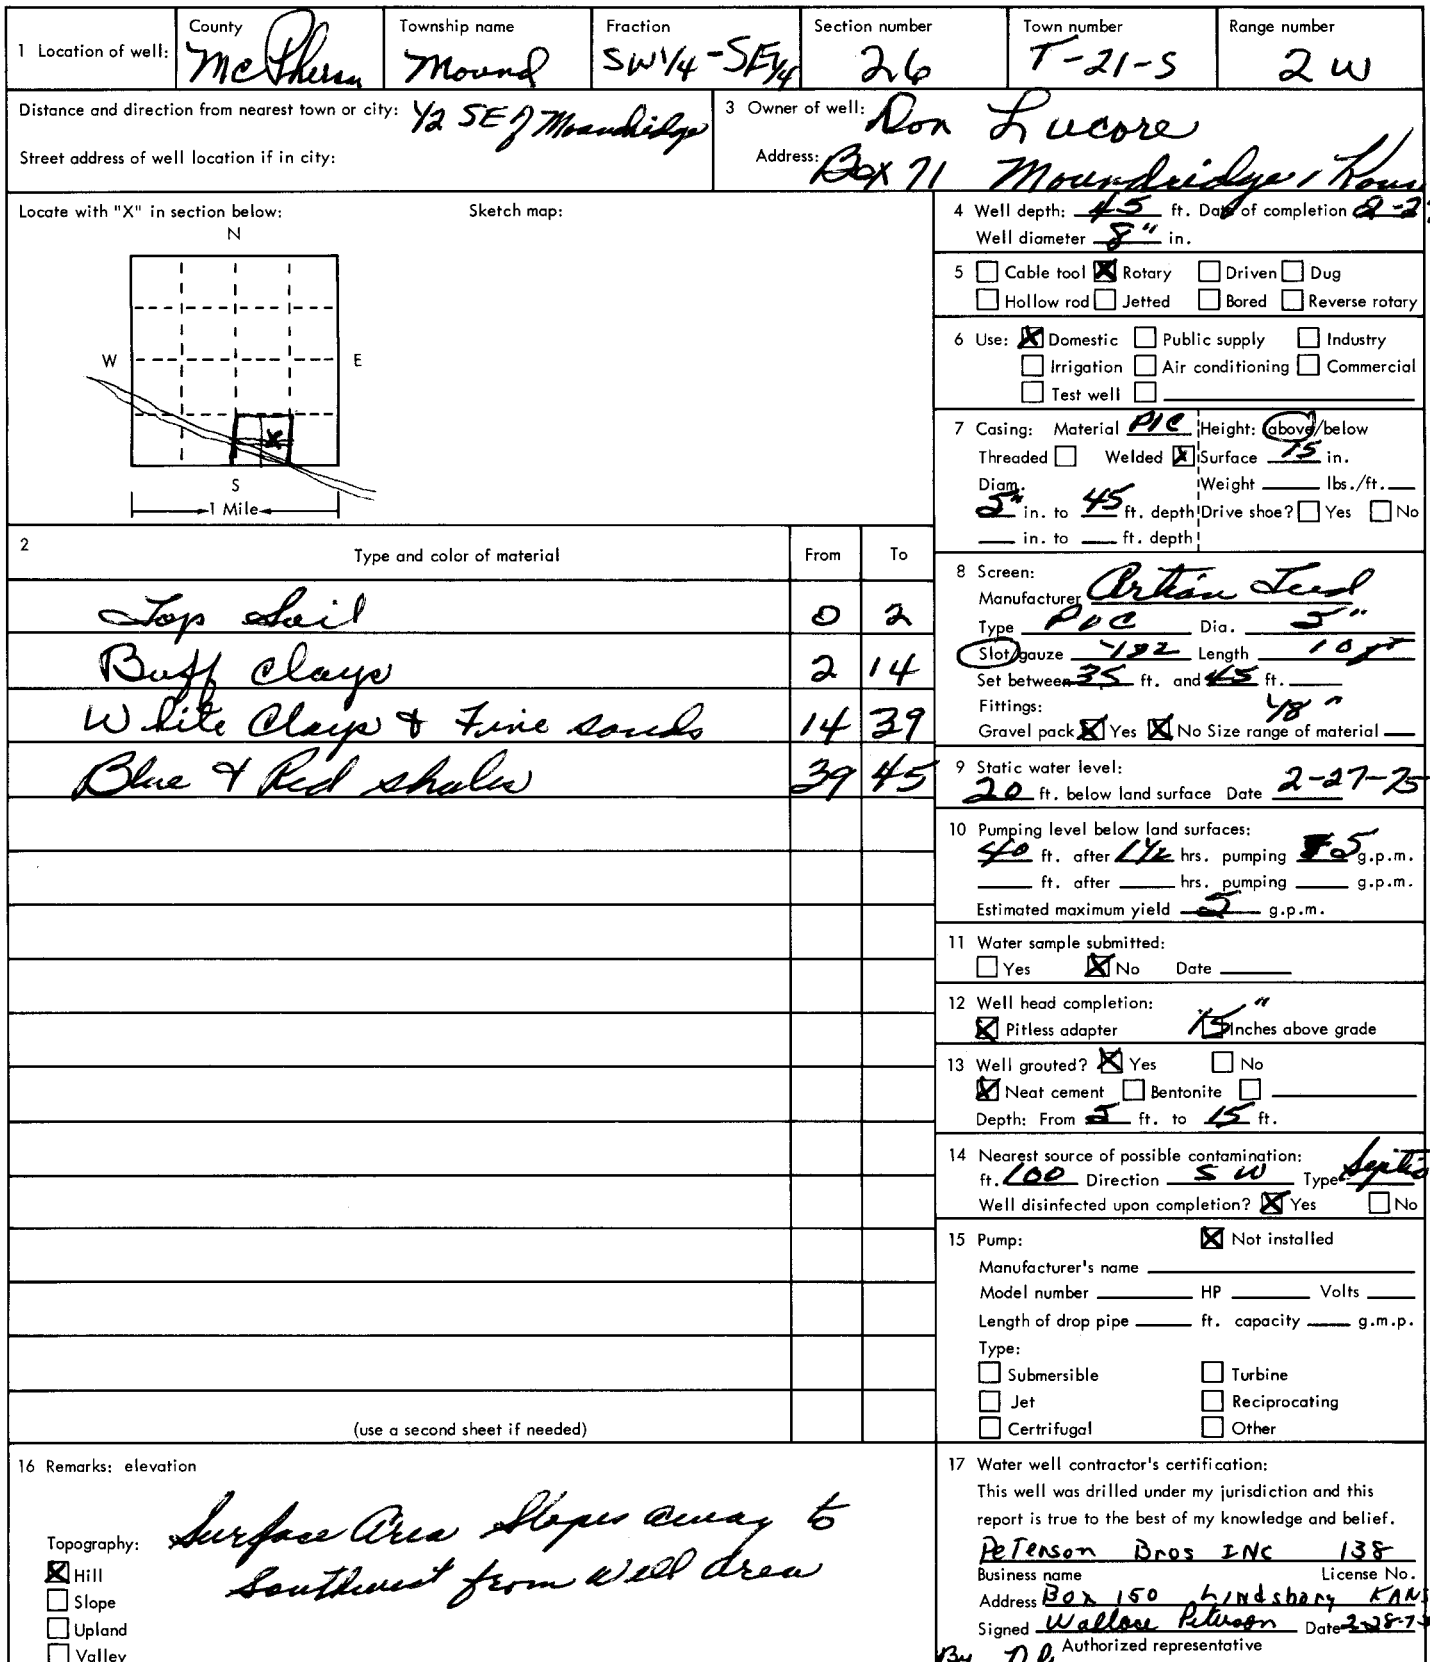 1 Location of well: County McPherson Township name Mound Fraction SW1/4-SE1/4 Section number 26 Town number T-21-S Range number 2 W
Distance and direction from nearest town or city: 1/2 SE of Moundridge
Street address of well location if in city:
3 Owner of well: Don Lucore
Address: Box 71 Moundridge, Kans
Locate with "X" in section below: Sketch map:
N
W E
X
S
1 Mile
2 Type and color of material From To
Top Soil 0 2
Buff Clays 2 14
White Clays & Fine sands 14 39
Blue & Red shales 39 45
(use a second sheet if needed)
4 Well depth: 45 ft. Date of completion 2-2
Well diameter 8" in.
5 Cable tool X Rotary Driven Dug
Hollow rod Jetted Bored Reverse rotary
6 Use: X Domestic Public supply Industry
Irrigation Air conditioning Commercial
Test well
7 Casing: Material PVC Height: above/below
Threaded Welded X Surface 15 in.
Diam. Weight lbs./ft.
5" in. to 45 ft. depth Drive shoe? Yes No
in. to ft. depth
8 Screen:
Manufacturer
Type PVC Dia. 5"
Slot/gauze Length 10 ft
Set between 35 ft. and 45 ft.
Fittings: 1/8"
Gravel pack X Yes X No Size range of material
9 Static water level:
20 ft. below land surface Date 2-27-75
10 Pumping level below land surfaces:
40 ft. after 1 1/2 hrs. pumping 5 g.p.m.
ft. after hrs. pumping g.p.m.
Estimated maximum yield 5 g.p.m.
11 Water sample submitted:
Yes X No Date
12 Well head completion:
X Pitless adapter 15" Inches above grade
13 Well grouted? X Yes No
X Neat cement Bentonite
Depth: From 5 ft. to 15 ft.
14 Nearest source of possible contamination:
ft. 100 Direction SW Type Septic
Well disinfected upon completion? X Yes No
15 Pump: X Not installed
Manufacturer's name
Model number HP Volts
Length of drop pipe ft. capacity g.m.p.
Type:
Submersible Turbine
Jet Reciprocating
Certrifugal Other
16 Remarks: elevation
Surface Area Slopes away to
Southwest from well area
Topography:
X Hill
Slope
Upland
Valley
17 Water well contractor's certification:
This well was drilled under my jurisdiction and this
report is true to the best of my knowledge and belief.
Peterson Bros INC 138
Business name License No.
Address Box 150 Lindsborg KANS
Signed Wallace Peterson Date 2-28-7
Authorized representative
By